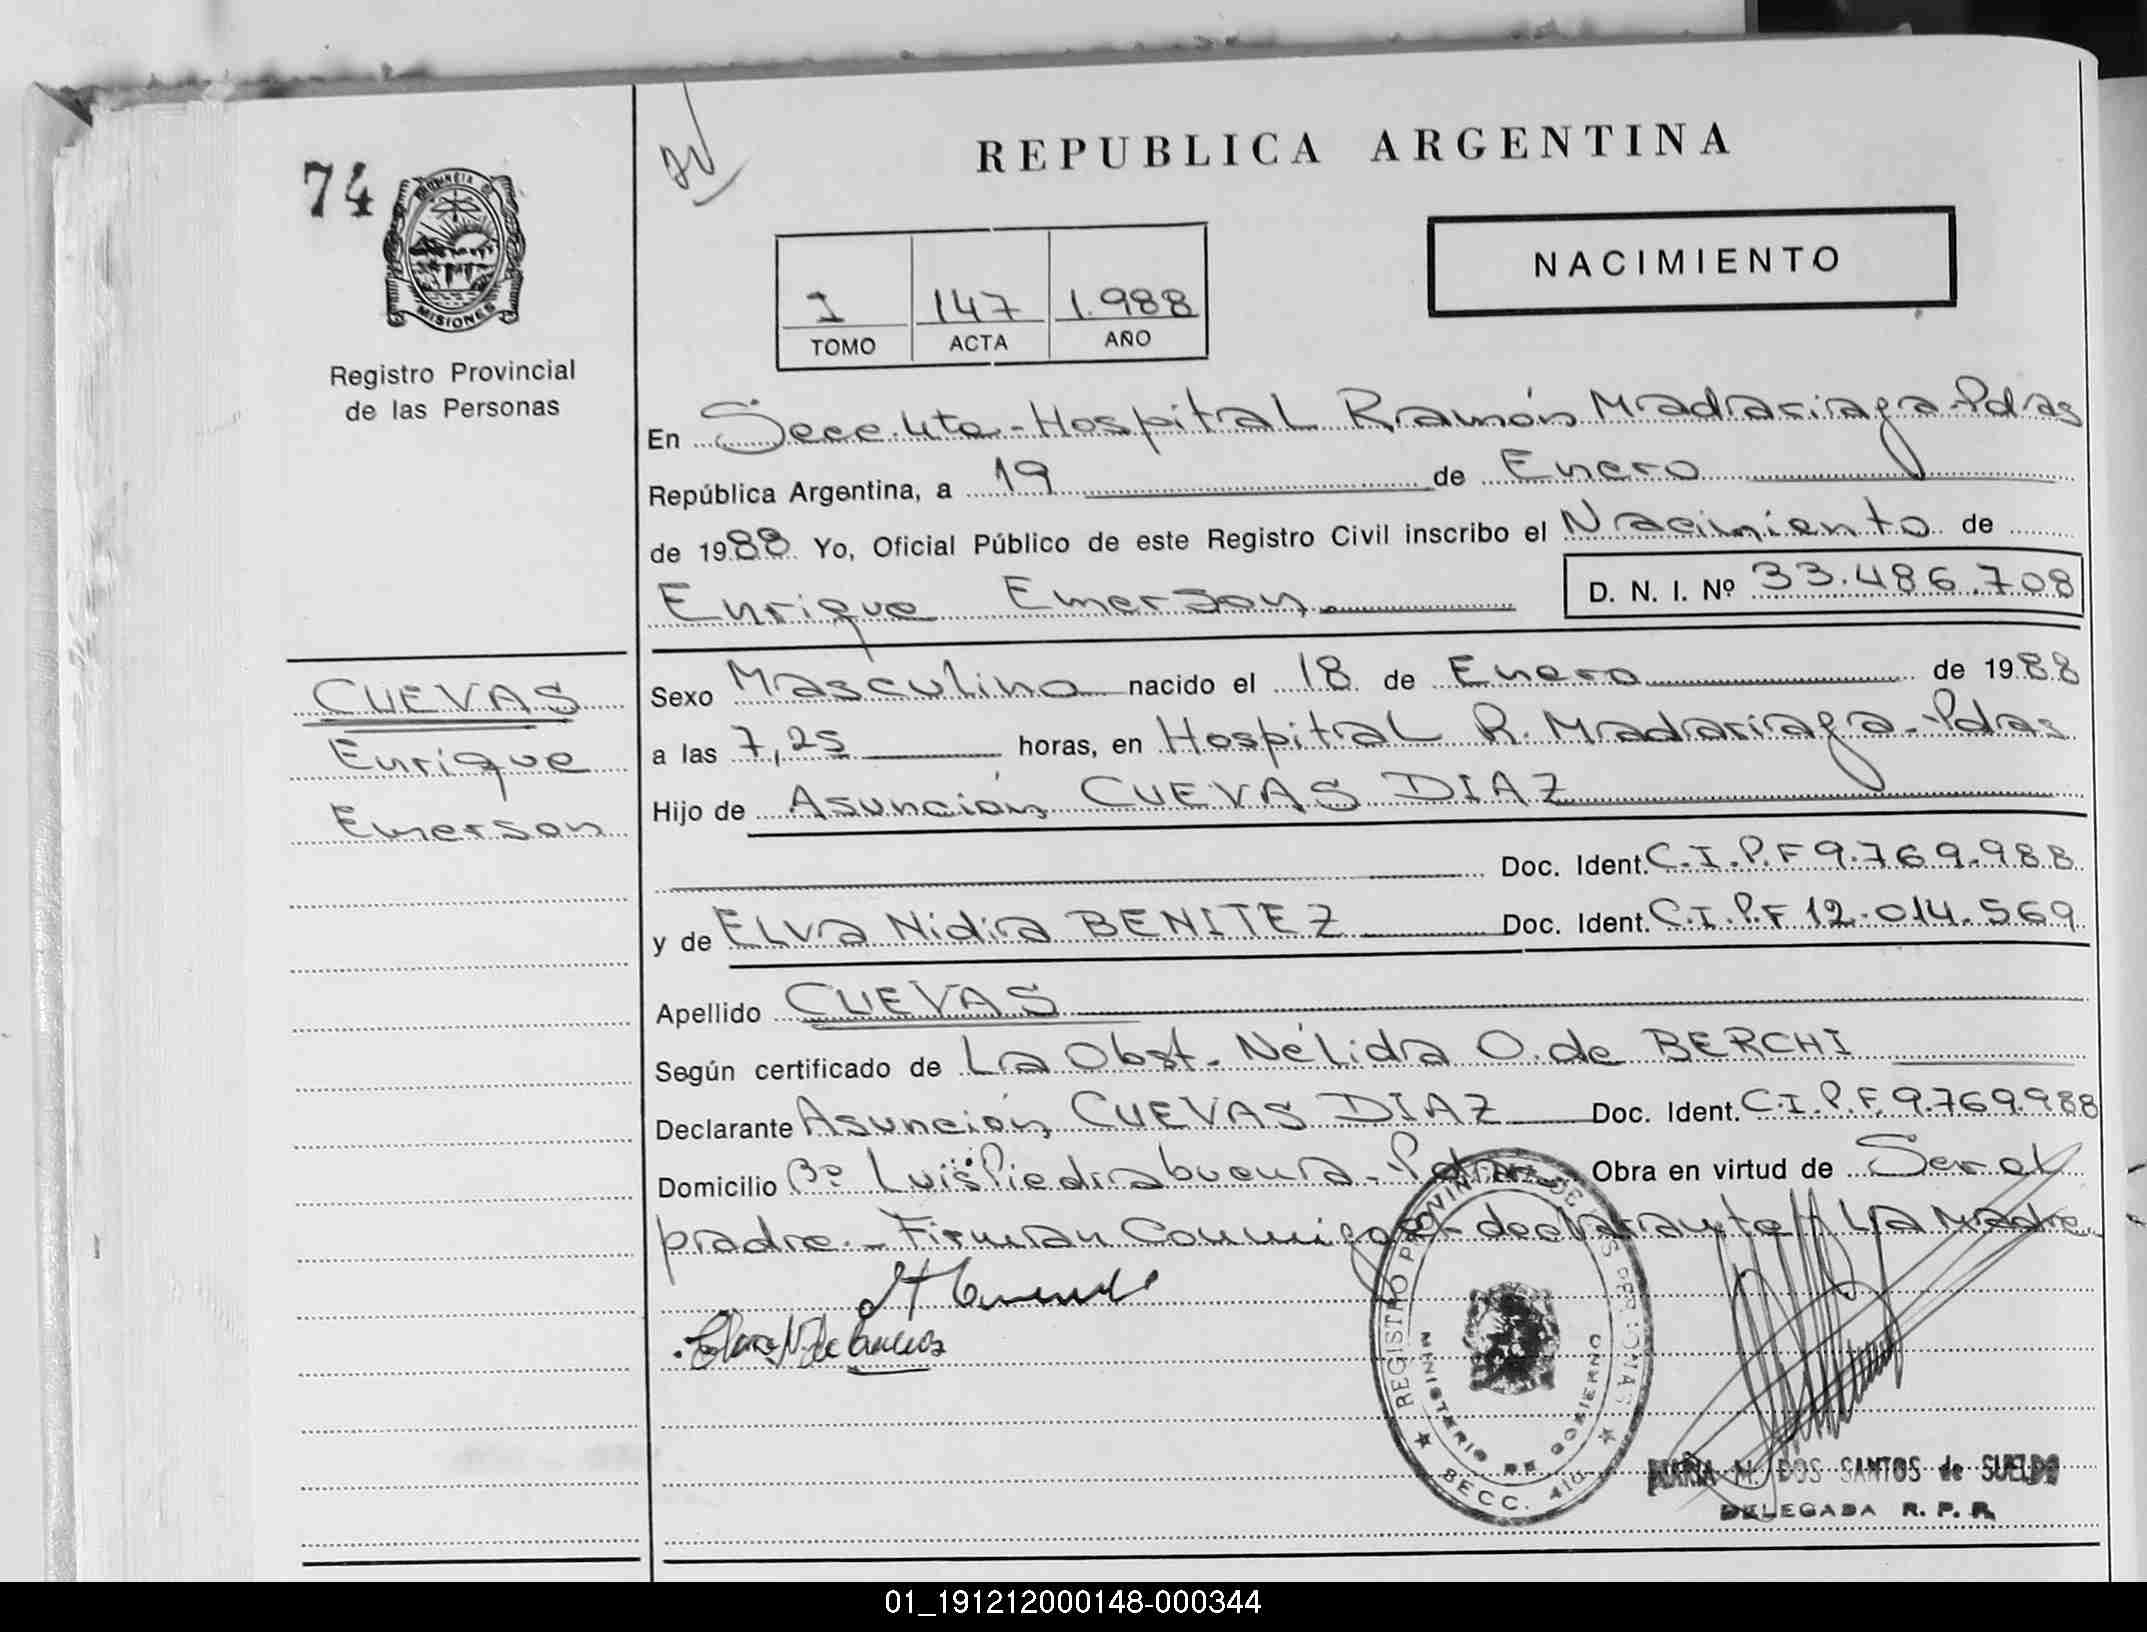 74
PROVINCIA DE
MISIONES
Registro Provincial
de las Personas
REPUBLICA ARGENTINA
NACIMIENTO
I 147 1.988
TOMO ACTA AÑO
En Secc. 4ta - Hospital Ramón Madariaga - Pdas
República Argentina, a 19 de Enero
de 1988 Yo, Oficial Público de este Registro Civil inscribo el Nacimiento de
Enrique Emerson D. N. I. Nº 33.486.708
CUEVAS
Enrique
Emerson
Sexo Masculino nacido el 18 de Enero de 1988
a las 7,25 horas, en Hospital R. Madariaga - Pdas
Hijo de Asunción CUEVAS DIAZ
Doc. Ident. C.I.P.F 9.769.988
y de ELVa Nidia BENITEZ Doc. Ident. C.I.P.F 12.014.569
Apellido CUEVAS
Según certificado de La Obst. Nélida O. de BERCHI
Declarante Asunción CUEVAS DIAZ Doc. Ident. C.I.P.F. 9.769.988
Domicilio Bº Luis Piedrabuena - Pdas Obra en virtud de Ser el
padre. - Firman Conmigo el declarante y La Madre
REGISTRO PROVINCIAL DE LAS PERSONAS
MINISTERIO DE GOBIERNO
SECC. 4ta
MARIA M. DOS SANTOS de SUELDO
DELEGADA R. P. P.
01_191212000148-000344